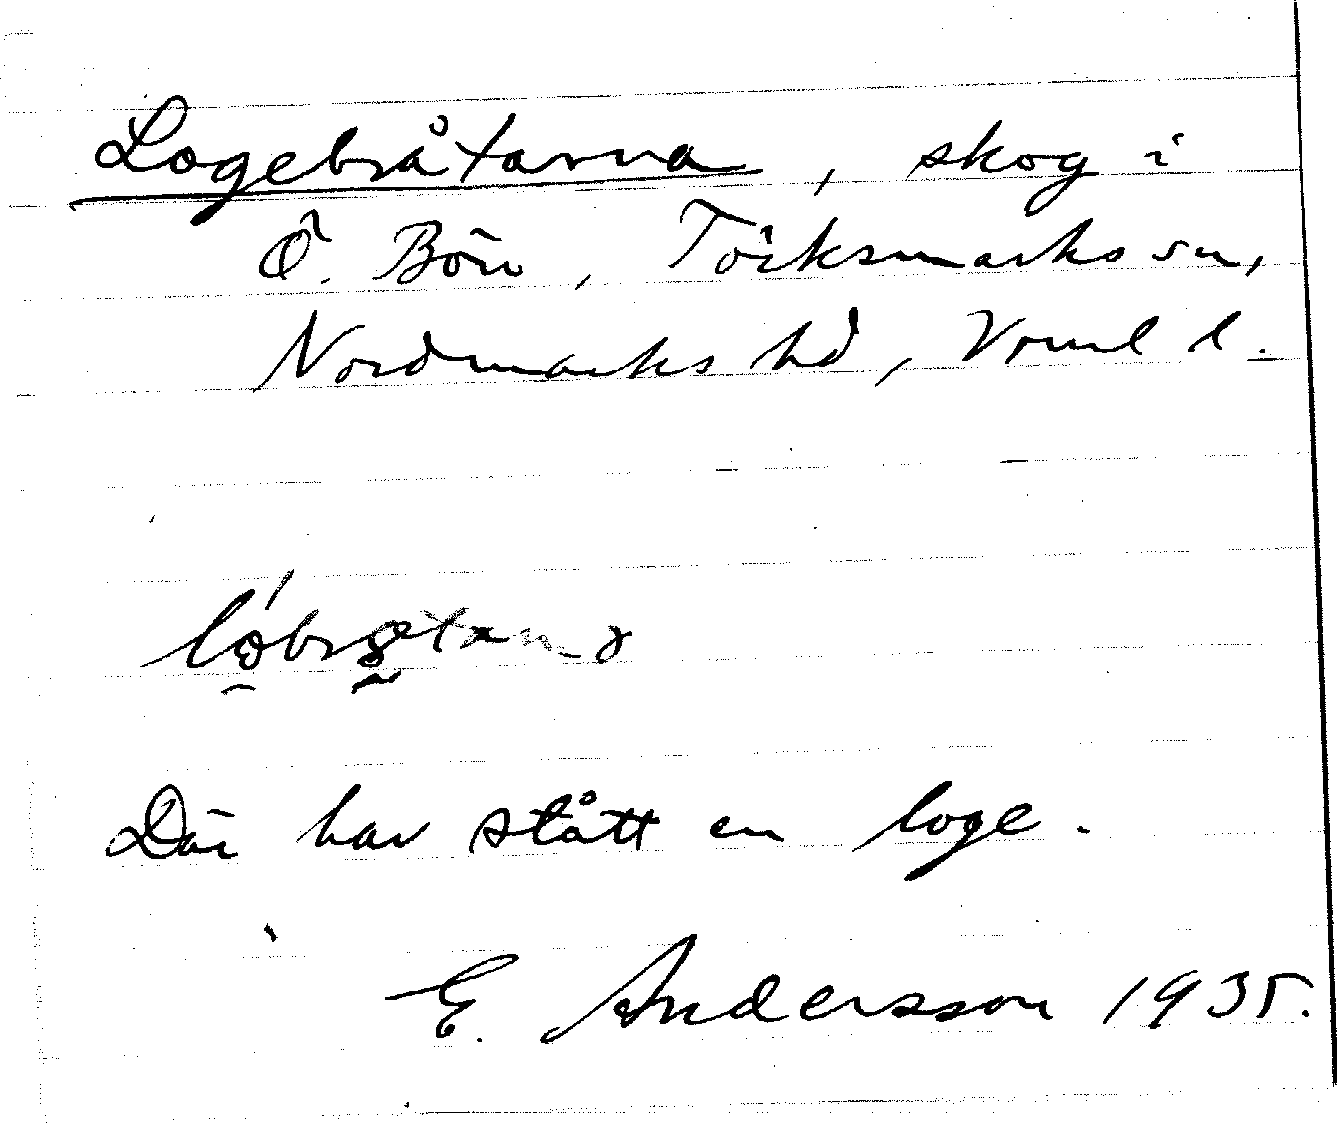 Logebråtarna, skog i
Ö. Bön, Töcksmarks sn,
Nordmarks hd, Vrml l.
Där har stått en loge.
E. Andersson 1935.